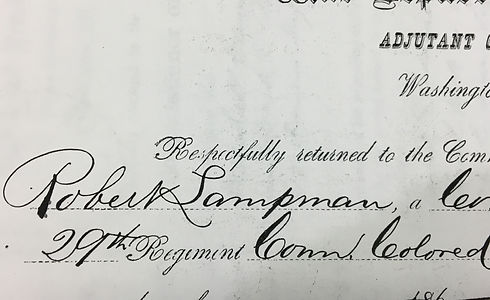 ADJUTANT
Washingto
Respectfully returned to the Com
Robert Lampman, a
29th Regiment Conn. Colored
186